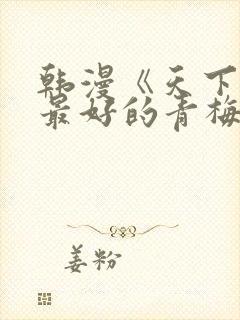 韩漫《天下
最好的青梅
姜粉